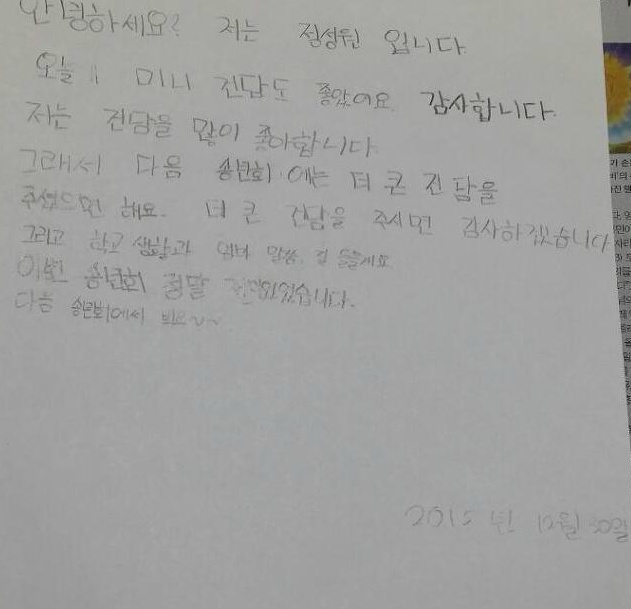 안녕하세요? 저는 정성원 입니다
오늘 미니 건담도 좋았어요. 감사합니다.
저는 건담을 많이 좋아합니다
그래서 다음 송년회에는 더 큰 건담을
주셨으면 해요. 더 큰 건담을 주시면 감사하겠습니다
그리고 학교 생활과 엄마 말씀 잘 들을게요
이번 송년회 정말 재미있었습니다.
다음 송년회에서 봐요~~
2015년 12월 30일